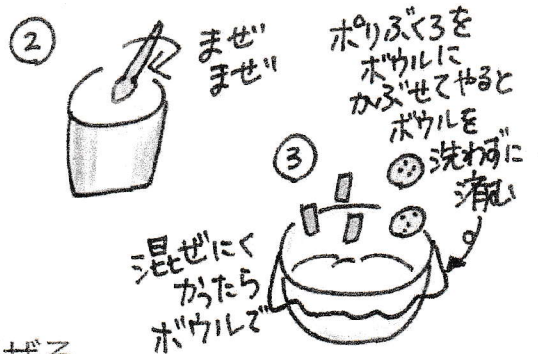 ②
まぜ
まぜ
ポリぶくろを
ボウルに
かぶせてやると
ボウルを
洗わずに
済む
③
混ぜにく
かったら
ボウルで
ぜる